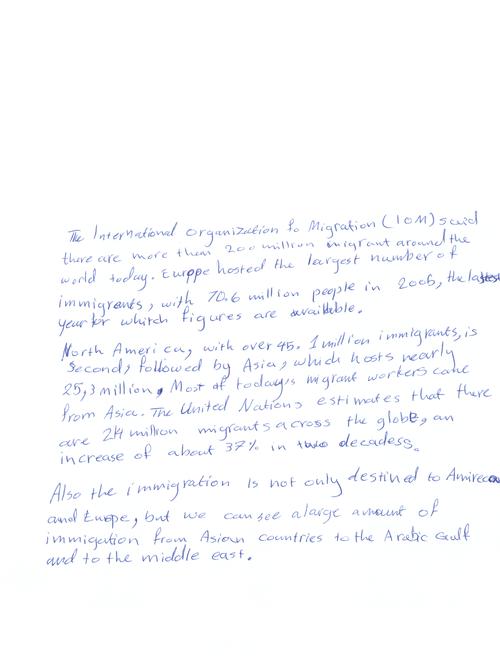 The International Organization fo Migration (IOM) said
there are more then 200 million migrant around the
world today. Europpe hosted the largest number of
immigrants, with 70.6 million people in 2005, the lastest
year for which figures are available.
North Ameri ca, with over 45. 1 million immigrants, is
Second, followed by Asia, which hosts nearly
25,3 million. Most of today's migrant workers came
from Asia. The United Nations estimates that there
are 214 million migrants across the globe, an
increase of about 37% in two decadess.
Also the immigration is not only destined to Amireca
and Europe, but we can see a large amount of
immigation from Asian countries to the Arabic Gulf
and to the middle east.